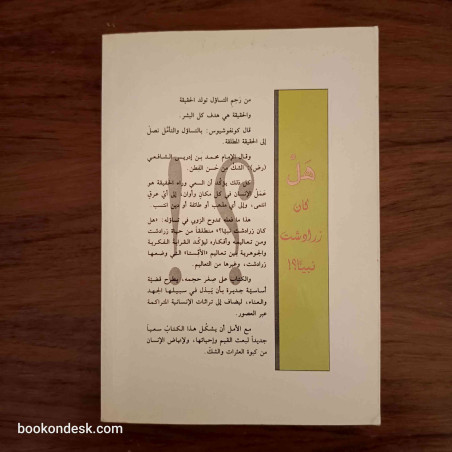 من رَحِم التساؤل تولد الحقيقة
والحقيقة هي هدف كل البشر.
قال كونفوشيوس: بالتساؤل والتأمّل نصل
إلى الحقيقة المطلقة.
وقال الإمام محمد بن إدريس الشافعي
(رض): الشك من حُسن الفطن.
كل ذلك يؤكّد أن السعي وراء الحقيقة هو
عَمَلُ الإنسان في كل مكان وأوان، إلى أي عرق
انتمى، وإلى أي مذهب أو طائفة أو دين انتسب.
هذا ما فعله ممدوح الزوبي في تساؤله: «هل
كان زرادشت نبيًا؟» منطلقاً من حياة زرادشت
ومن تعاليمه وأفكاره ليؤكّد القرابة الفكرية
والجوهرية بين تعاليم «الأفستا» التي وضعها
زرادشت، وغيرها من التعاليم.
والكتاب على صغر حجمه، يطرح قضيّة
أساسيّة جديرة بأن يُبذل في سبيلها الجهد
والعناء، ليضاف إلى تراثات الإنسانية المتراكمة
عبر العصور.
مع الأمل أن يشكّل هذا الكتاب سعياً
جديداً لبعث القيم وإحيائها، ولإنهاض الإنسان
من كبوة العثرات والشك.
هَلْ
كان
زرادشت
نبيًا؟!
؟!
bookondesk.com